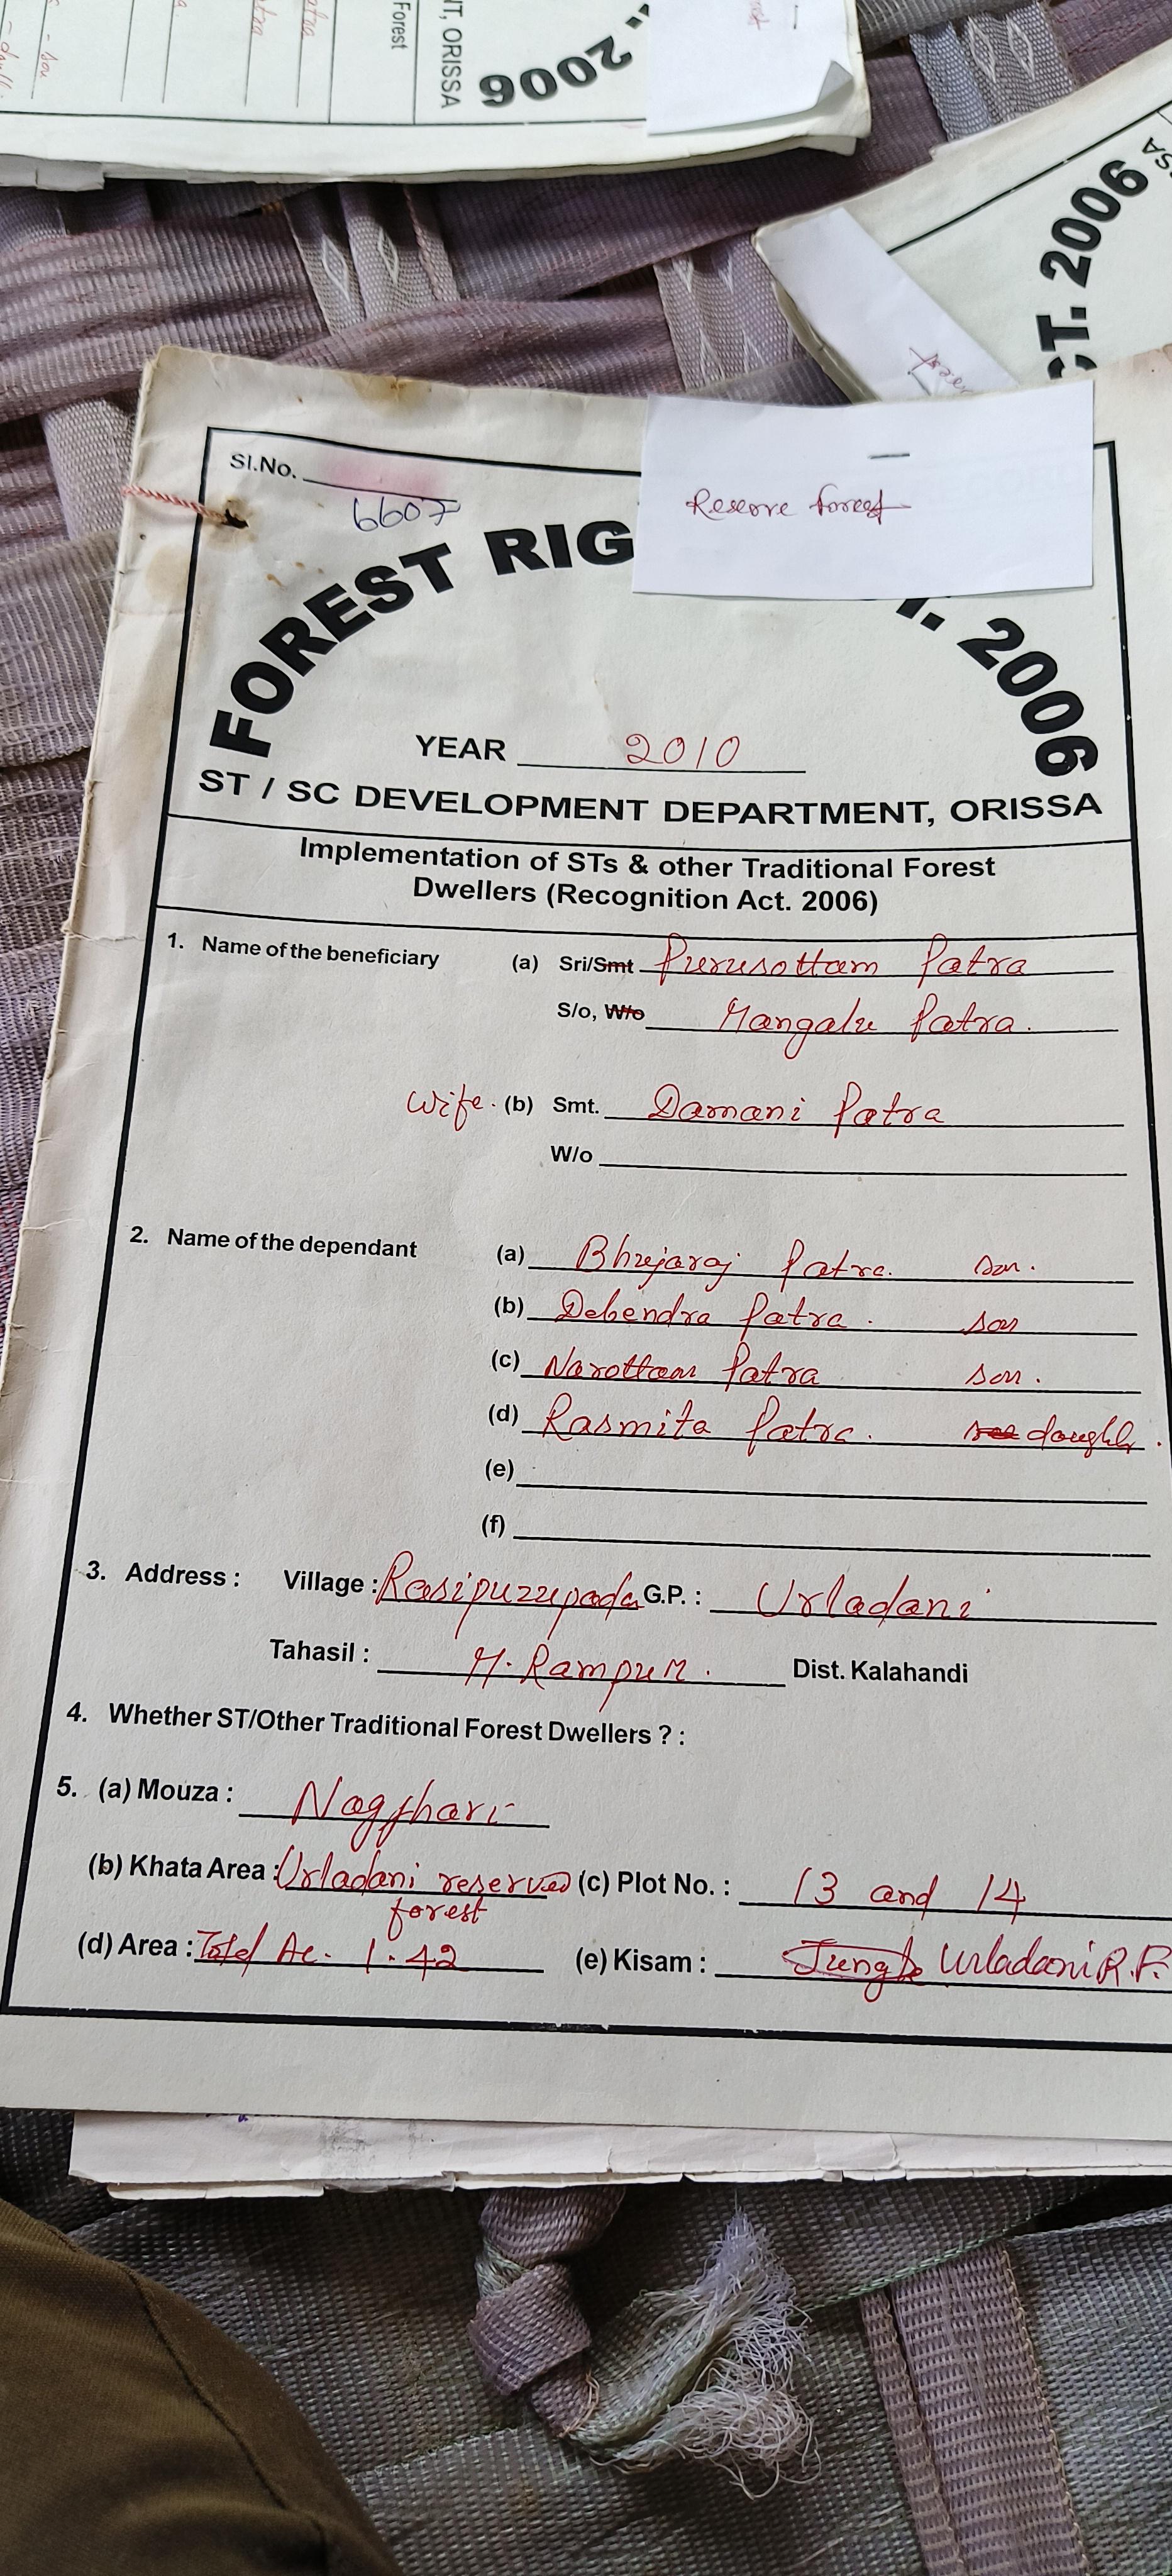 Forest
NT, ORISSA
2006
CT. 2006
Sl.No.
6607
Reserve forest
FOREST RIG T. 2006
YEAR 2010
ST / SC DEVELOPMENT DEPARTMENT, ORISSA
Implementation of STs & other Traditional Forest
Dwellers (Recognition Act. 2006)
1. Name of the beneficiary (a) Sri/Smt Purusottam Patra
S/o, W/o Mangalu Patra.
Wife. (b) Smt. Damani Patra
W/o
2. Name of the dependant (a) Bhujaraj Patra. son.
(b) Debendra Patra. son
(c) Narottam Patra son.
(d) Rasmita Patra. daughter.
(e)
(f)
3. Address : Village : Rasipuzupada G.P. : Urladani
Tahasil : M. Rampur. Dist. Kalahandi
4. Whether ST/Other Traditional Forest Dwellers ? :
5. (a) Mouza : Nagjhari
(b) Khata Area : Urladani reserved (c) Plot No. : 13 and 14
forest
(d) Area : Total Ac. 1.42 (e) Kisam : Jungle Urladani R.F.